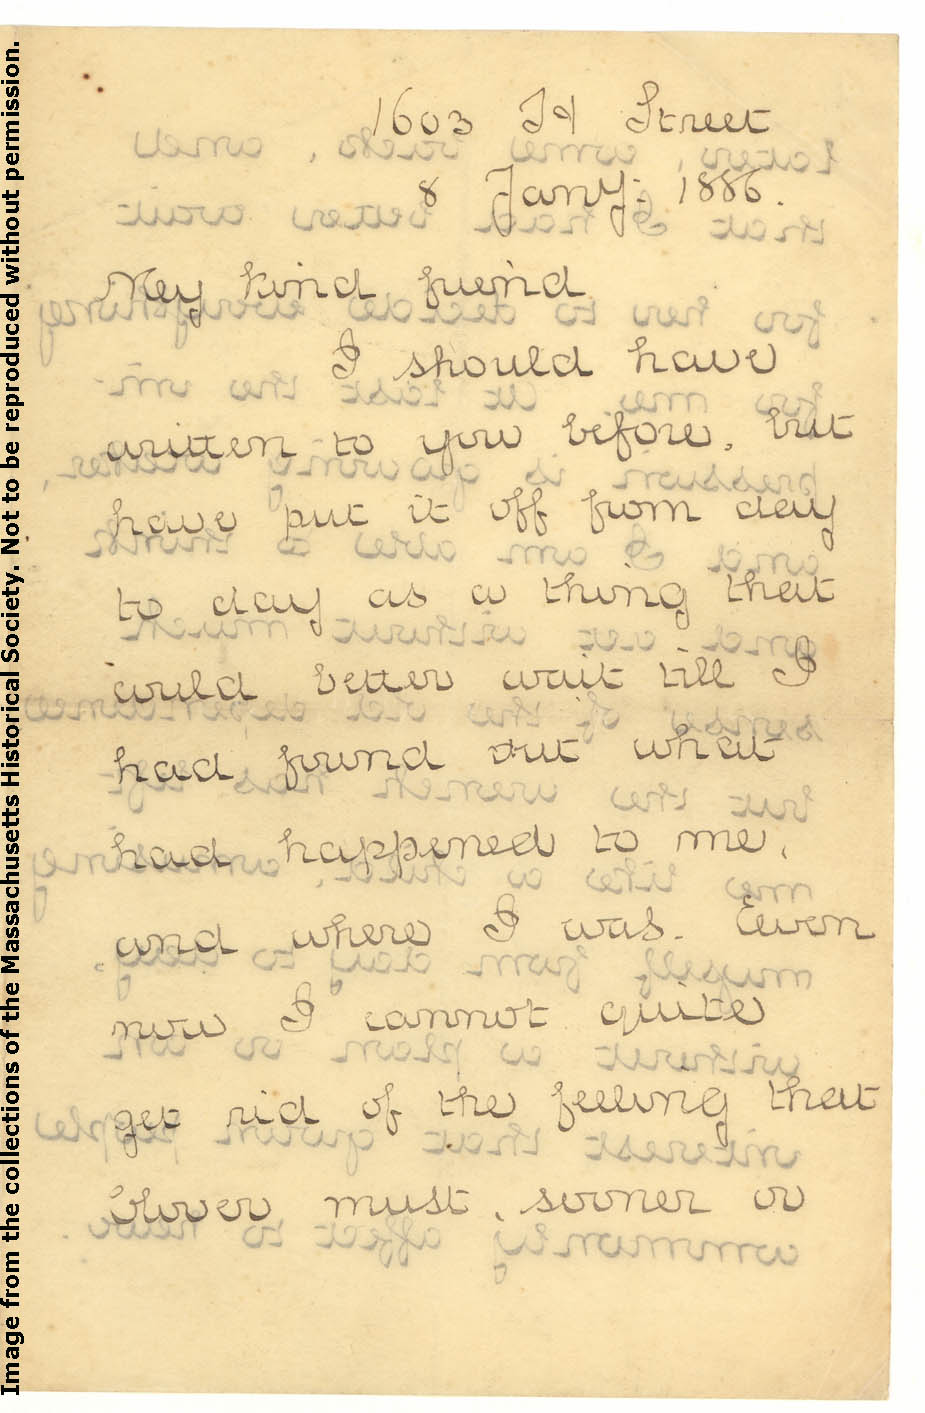 1603 H Street
8 Jany. 1886.
My kind friend
I should have
written to you before, but
have put it off from day
to day as a thing that
could better wait till I
had found out what
had happened to me,
and where I was. Even
now I cannot quite
get rid of the feeling that
Clover must, sooner or
Image from the collections of the Massachusetts Historical Society. Not to be reproduced without permission.